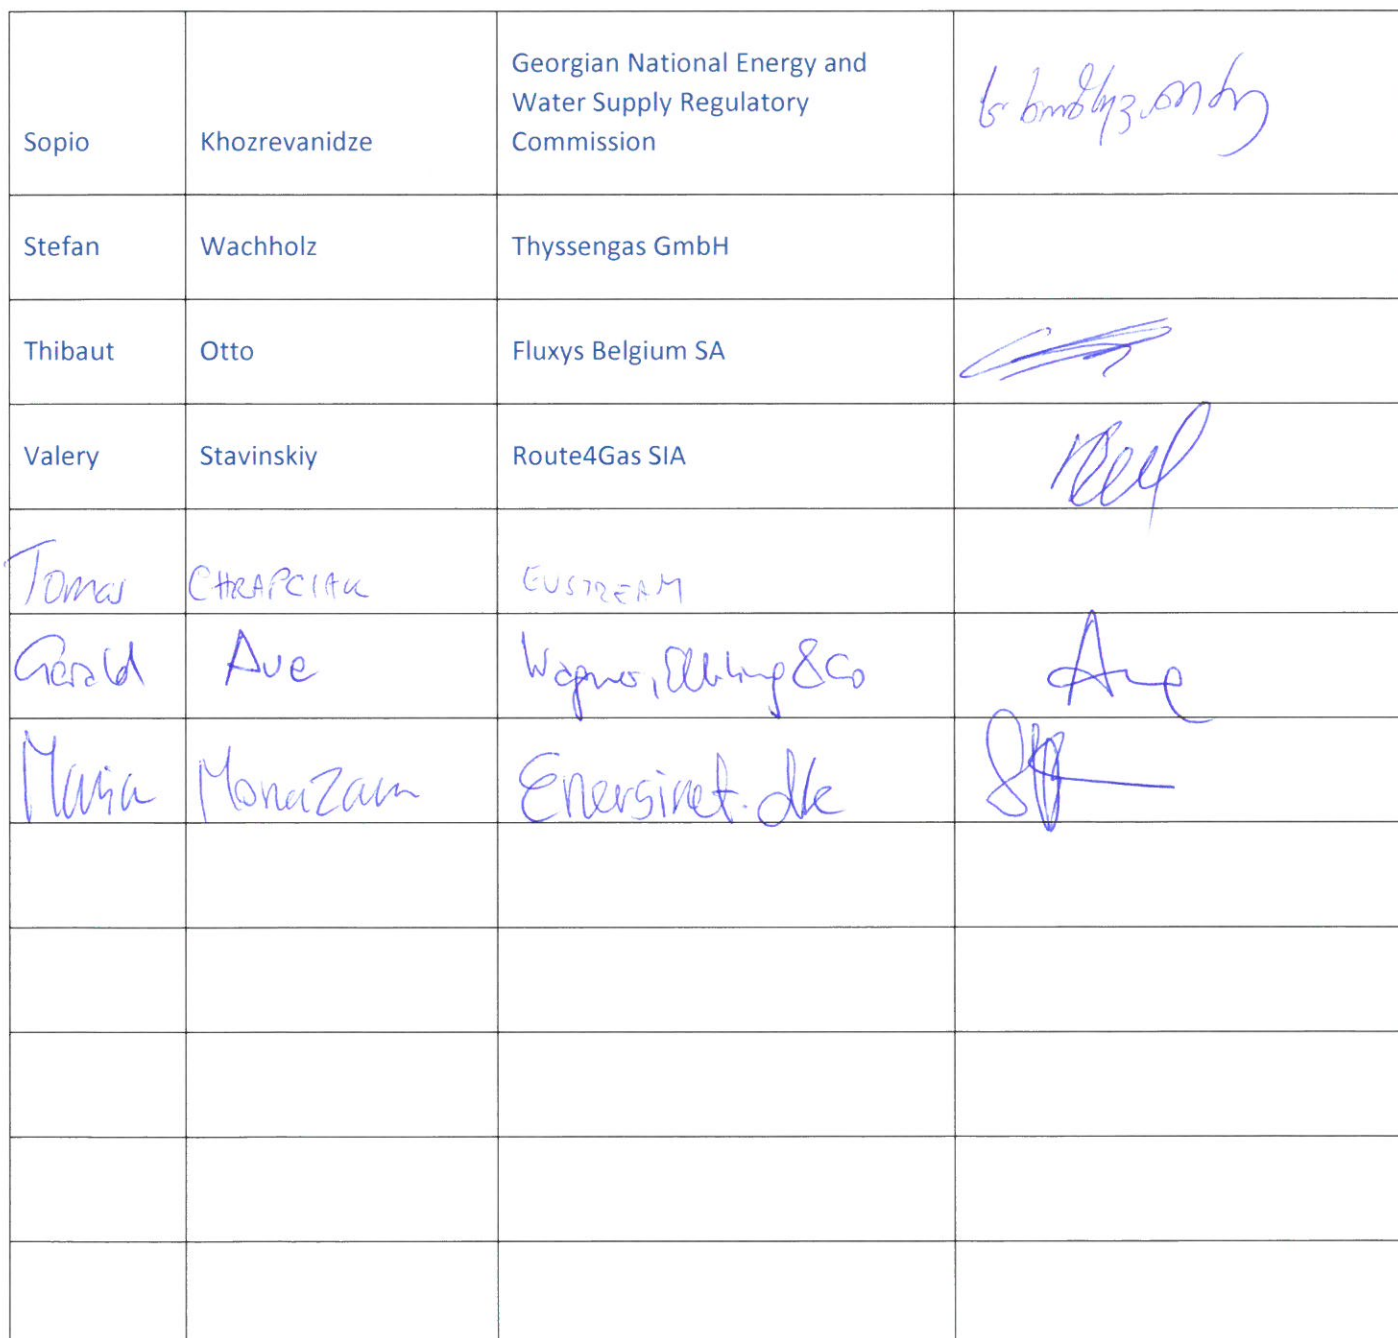 Georgian National Energy and
Water Supply Regulatory
Sopio Khozrevanidze Commission
Stefan Wachholz Thyssengas GmbH
Thibaut Otto Fluxys Belgium SA
Valery Stavinskiy Route4Gas SIA
Tomas CHRAPCIAK EUSTREAM
Gerald Ave Wagner, Elbling & Co Ave
Maria Monazam Energinet.dk